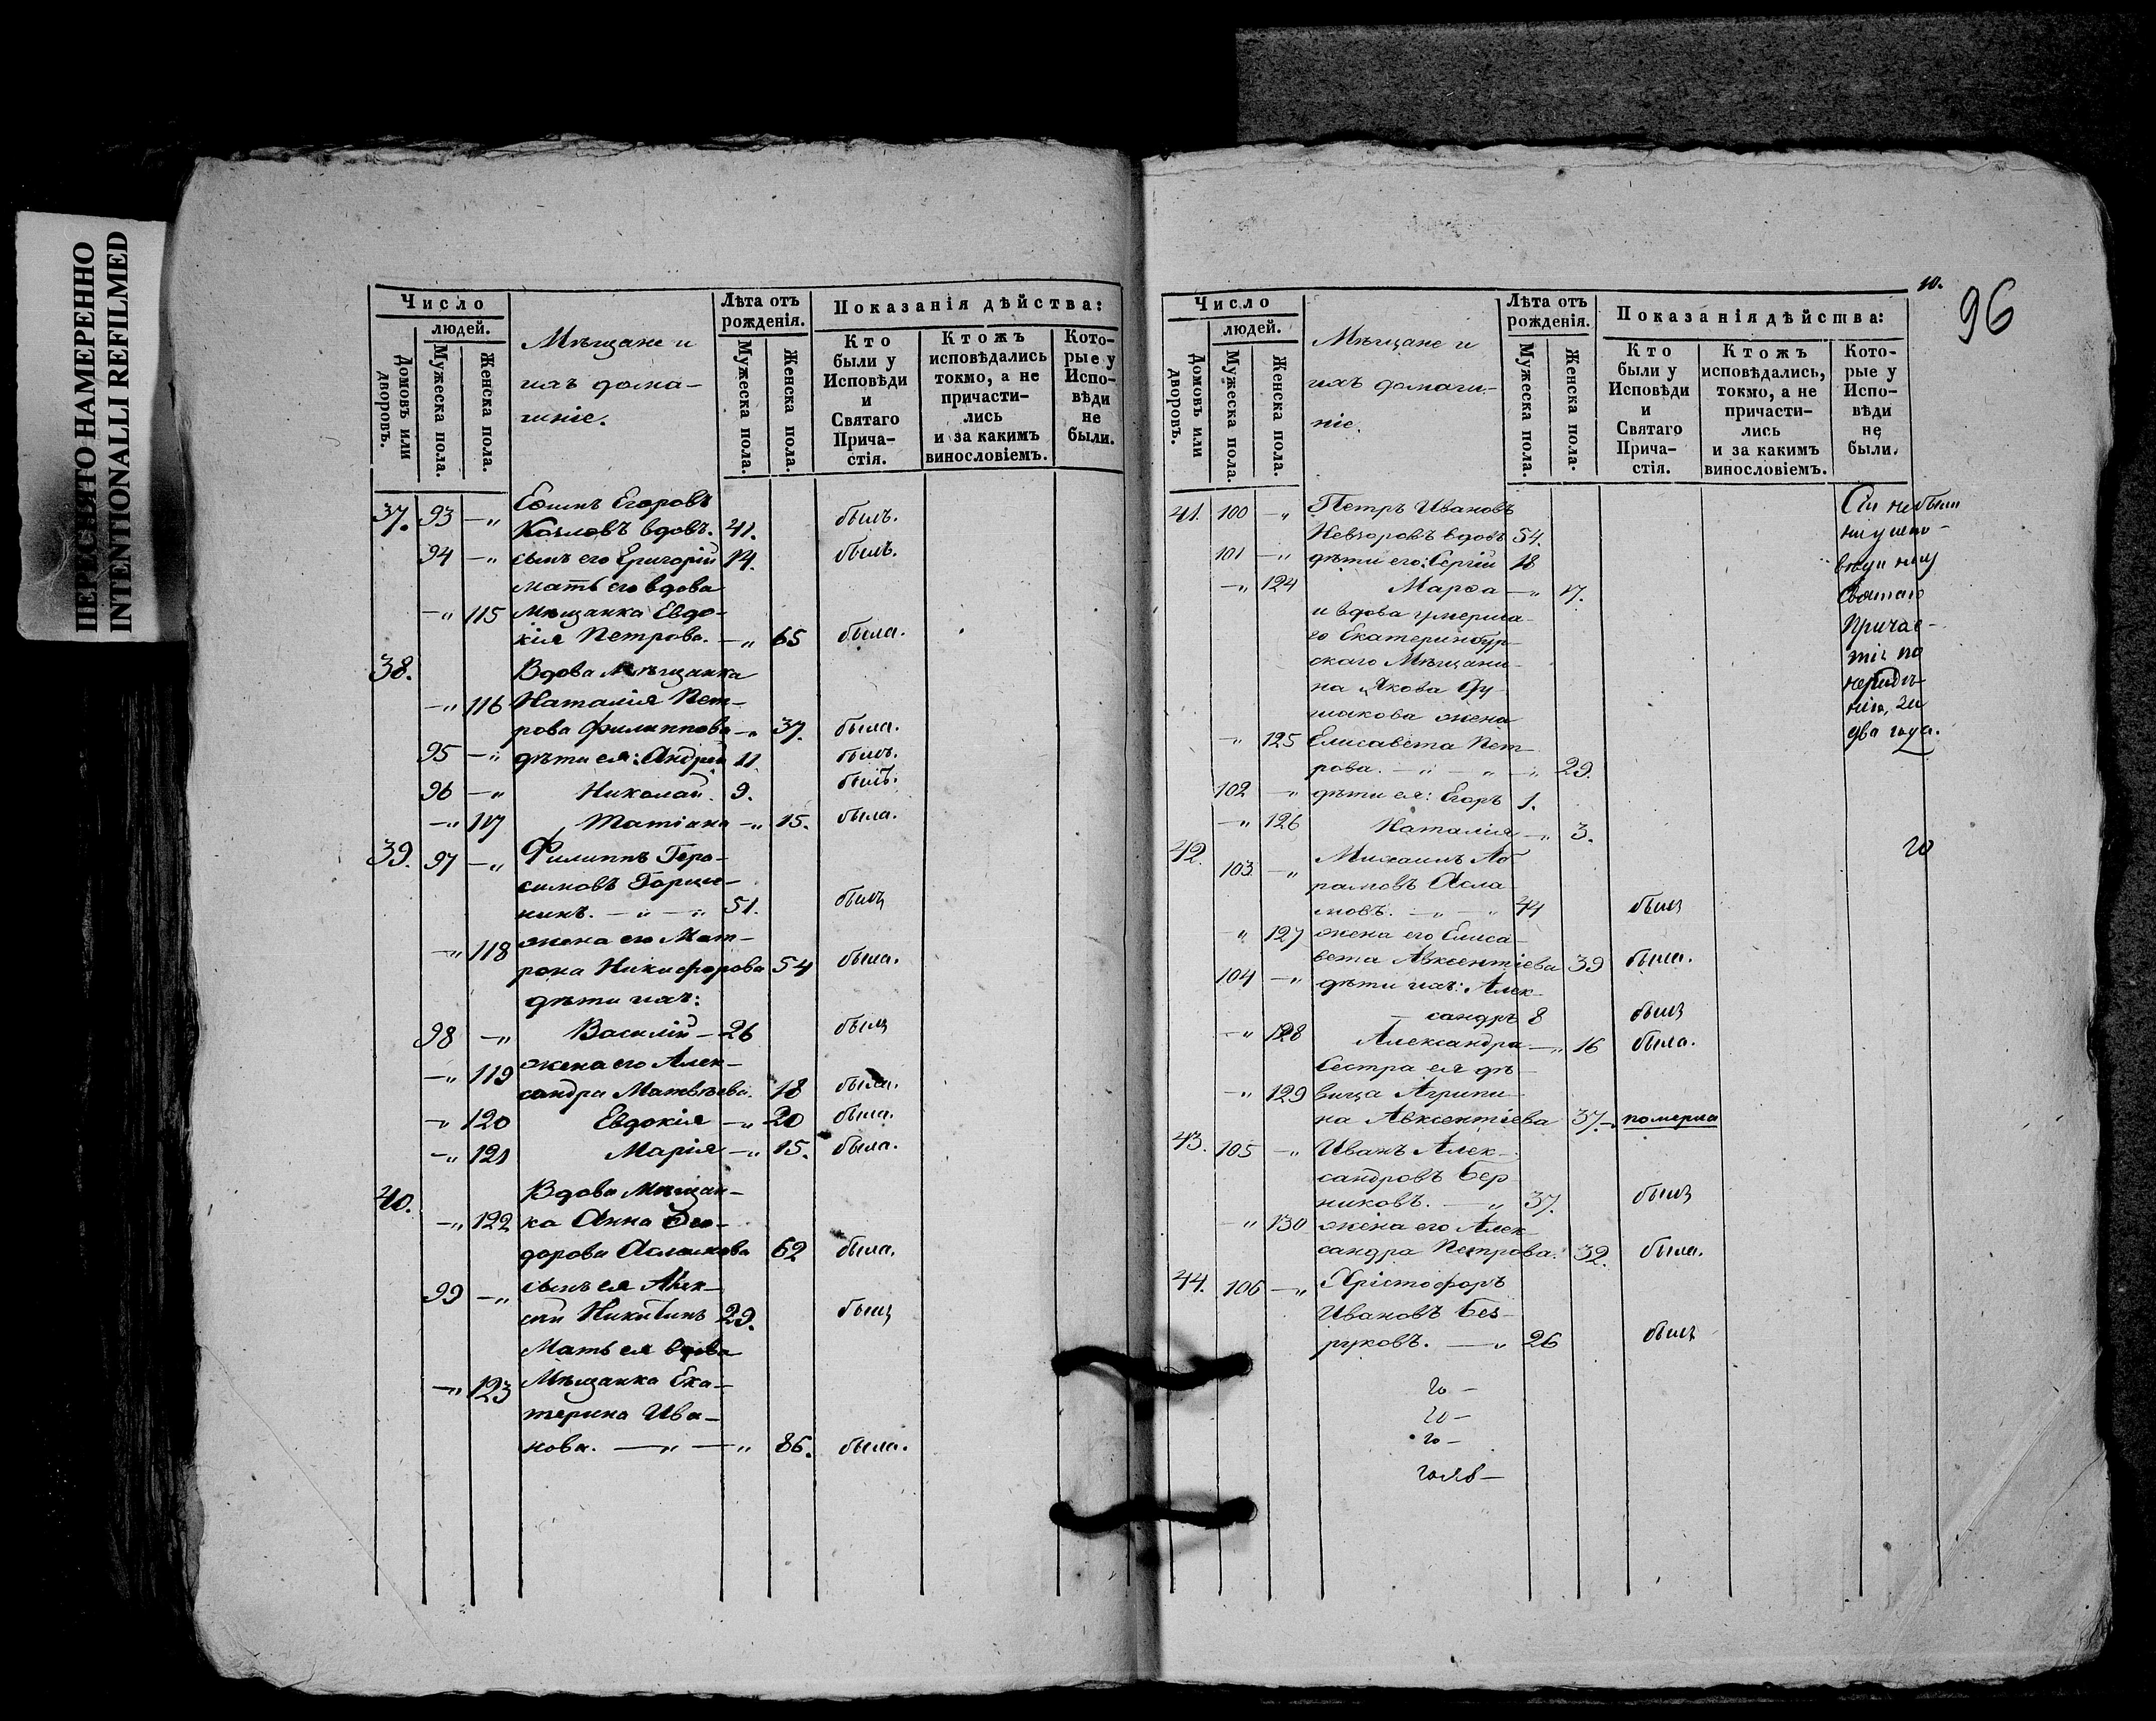 ПЕРЕСНЯТО НАМЕРЕННО
INTENTIONALLI REFILMED
Число
людей.
Домовъ или дворовъ.
Мужеска пола.
Женска пола.
Мѣщане и
ихъ дома-
шніе.
Лѣта отъ рожденія.
Мужеска пола.
Женска пола.
Показанія дѣйства:
Кто были у Исповѣди и Святаго Прича- стія.
Ктожъ исповѣдались токмо, а не причасти- лись и за какимъ винословіемъ.
Кото- рые у Испо- вѣди не были.
37. 93 —„ Егоровъ
Козловъ вдовъ. 41. былъ.
94 —„ сынъ его Григорій 14. былъ.
мать его вдова
—„ 115 Мѣщанка Евдо-
кія Петрова. —„ 65 была.
38. Вдова Мѣщанка
—„ 116 Наталія Пет-
рова Филиппова —„ 37. была.
95 —„ дѣти ея: Андрей 11 былъ.
96 —„ Николай. 9. былъ.
—„ 117 Татіана —„ 15. была.
39. 97 —„ Филиппъ Гера-
симовъ
нинъ. —„ —„ 51. былъ
—„ 118 жена его Мат-
рона Никифорова 54 была.
дѣти ихъ:
98 —„ Василій — 26 былъ
—„ 119 жена его Алек-
сандра Матвѣева. 18 была.
—„ 120 Евдокія —„ 20 была.
—„ 121 Марія —„ 15. была.
40. Вдова Мѣщан-
—„ 122 ка Анна Ѳео-
дорова Асламова 62 была.
99 —„ сынъ ея Алек-
сѣй Никитинъ 29. былъ
Мать ея вдова
—„ 123 Мѣщанка Ека-
терина Ива-
нова. —„ —„ 86. была.
10.
96
Число
людей.
Домовъ или дворовъ.
Мужеска пола.
Женска пола.
Мѣщане и
ихъ домаш-
ніе.
Лѣта отъ рожденія.
Мужеска пола.
Женска пола.
Показанія дѣйства:
Кто были у Исповѣди и Святаго Прича- стія.
Ктожъ исповѣдались, токмо, а не причасти- лись и за какимъ винословіемъ.
Кото- рые у Испо- вѣди не были.
41. 100 —„ Петръ Ивановъ
Невзоровъ вдовъ 54.
101 —„ дѣти его: Сергій 18
—„ 124 Марѳа —„ 17.
и вдова умерша-
го Екатеринбур-
скаго Мѣщани-
на Якова
жена
—„ 125 Елисавета Пет-
рова. —„ —„ —„ 29.
102 —„ дѣти ея: Егоръ 1.
—„ 126 Наталія —„ 3.
Сіи не были
ни у испо-
вѣди ни у
Святаго
Причас-
тія по
нерадѣ-
нію,
два года.
42. 103 —„ Михаилъ Аб-
рамовъ Асла-
мовъ. —„ —„ 44 былъ
—„ 127 жена его Елиса-
вета Авксентіева 39 была.
104 —„ дѣти ихъ: Алек-
сандръ 8 былъ
—„ 128 Александра —„ 16 была.
Сестра ея дѣ-
—„ 129 вица Агрипи-
на Авксентіева 37. — померла
43. 105 —„ Иванъ Алек-
сандровъ Бер-
никовъ. —„ 37. былъ
—„ 130 жена его Алек-
сандра Петрова. 32. была.
44. 106 —„ Христофоръ
Ивановъ Без-
руковъ. —„ 26 былъ